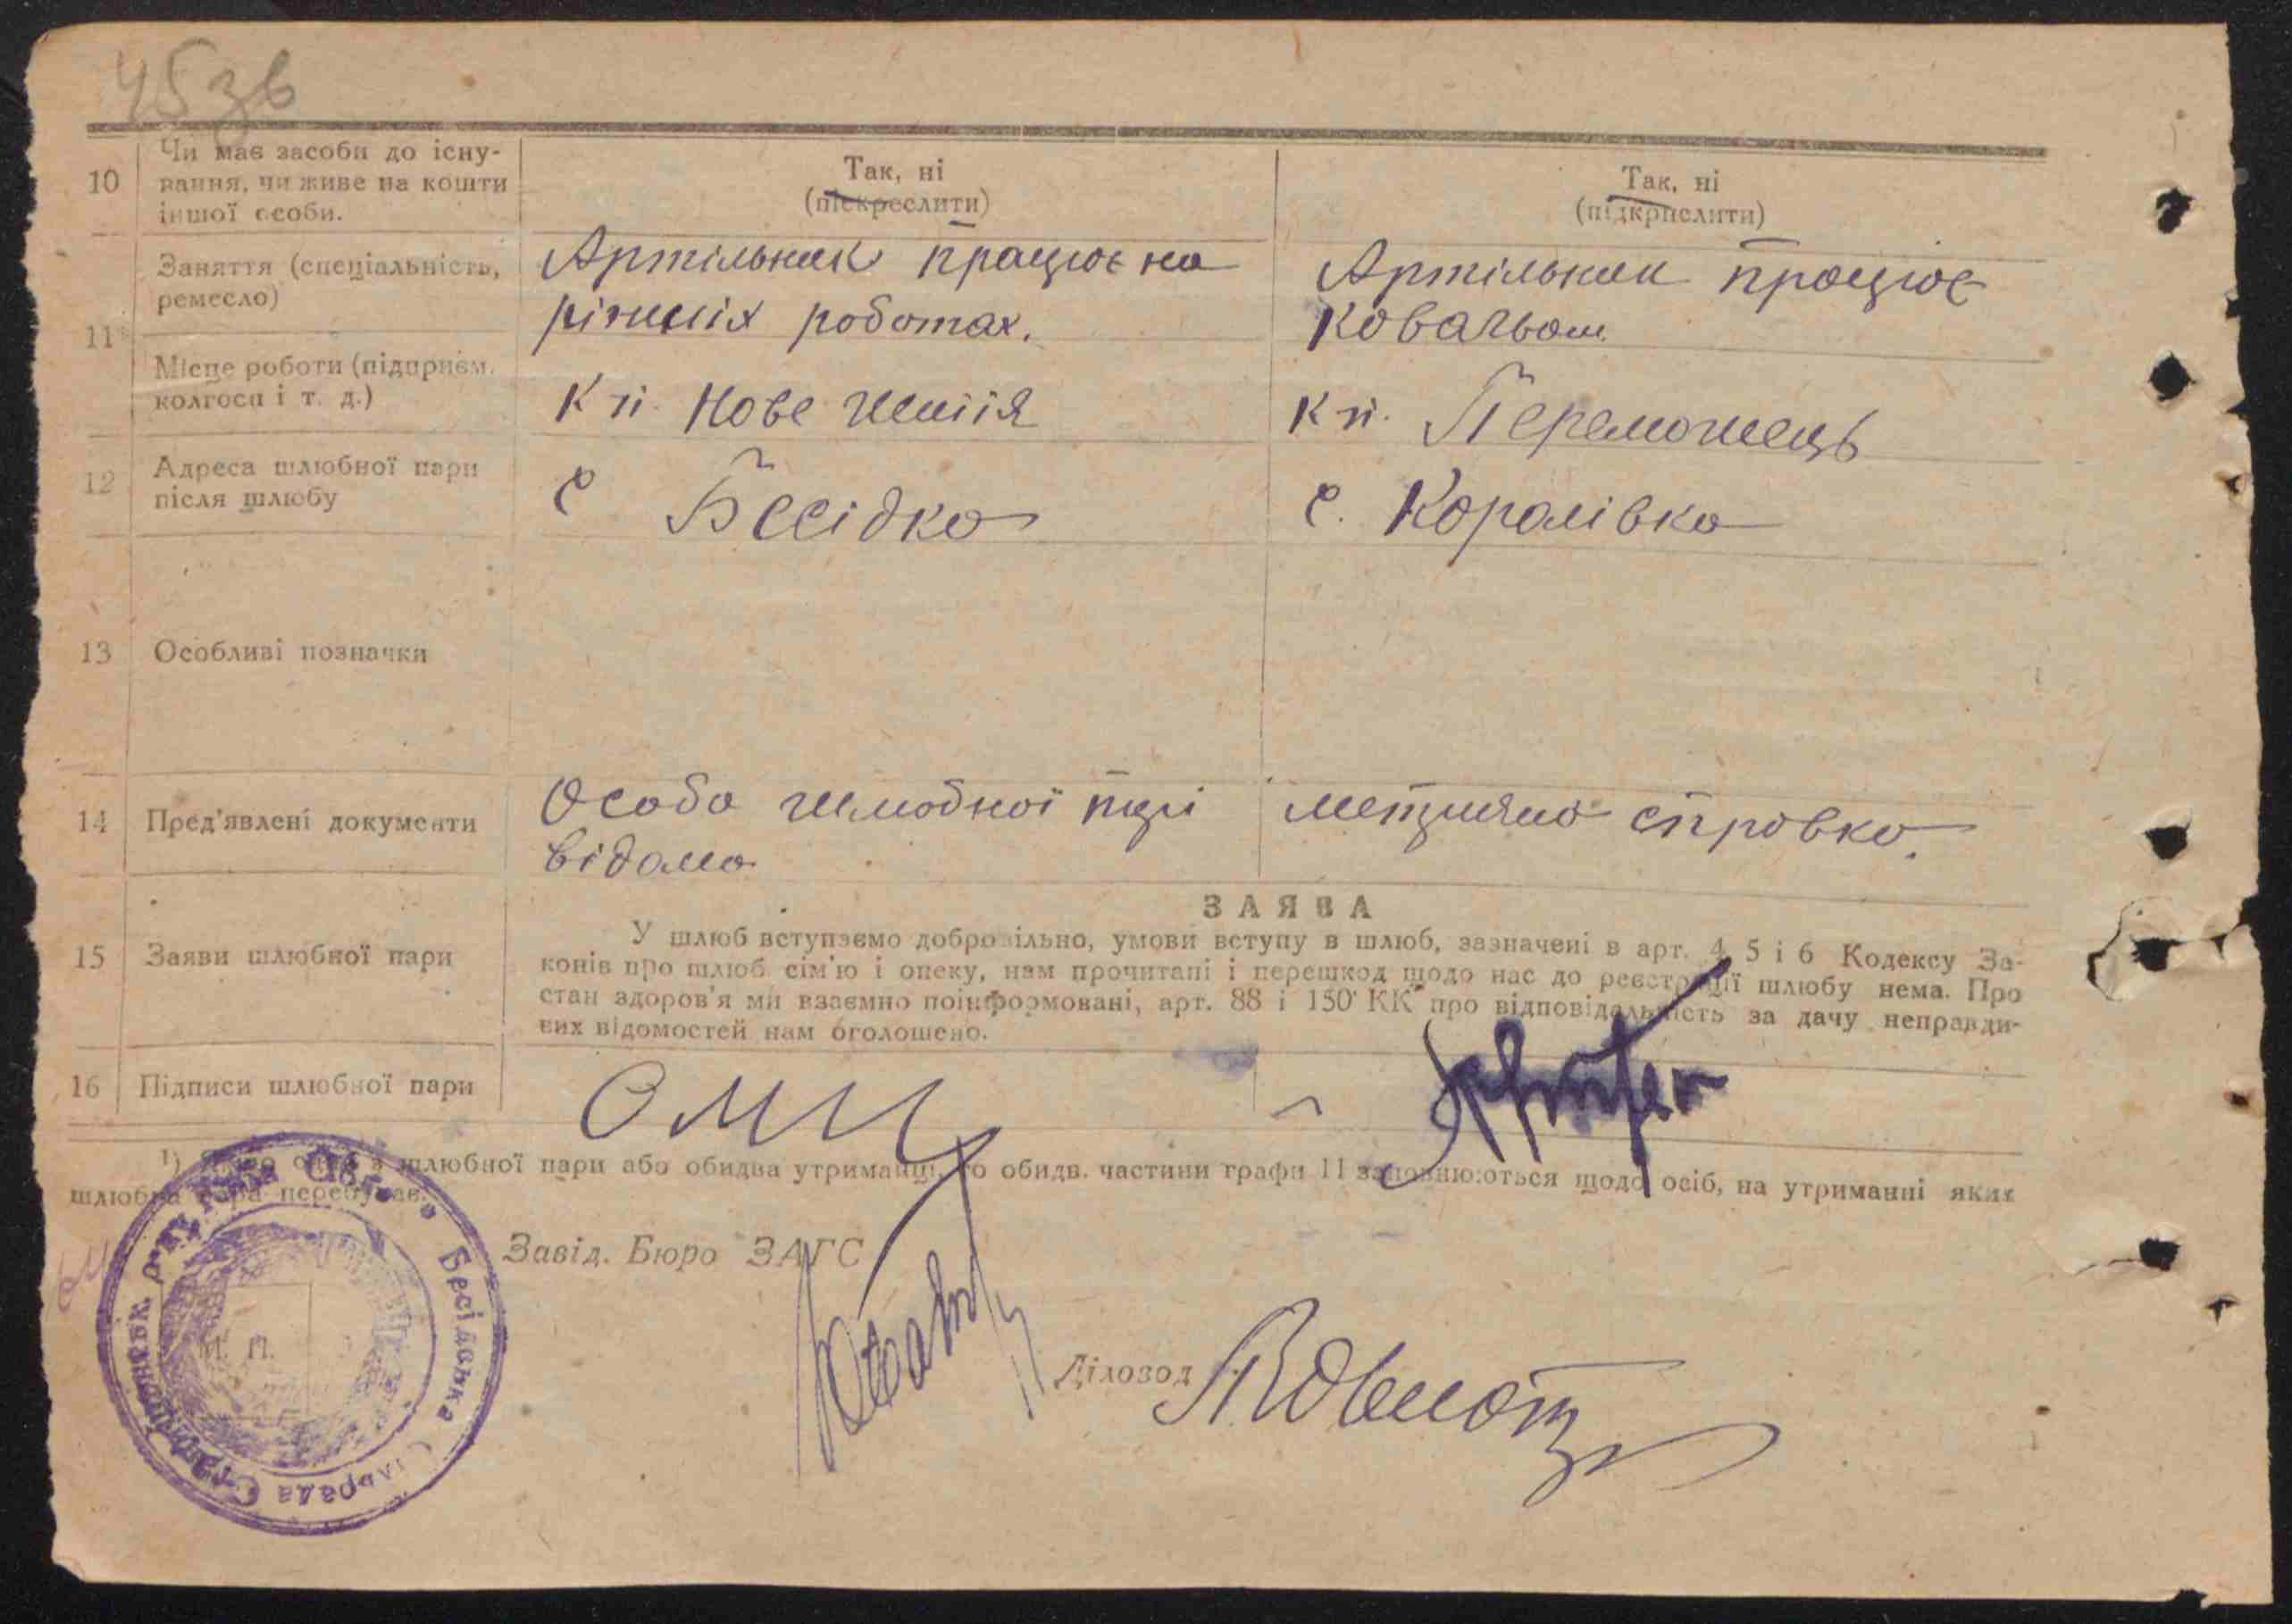 45 зв
10
Чи має засоби до існу-
вання, чи живе на кошти
іншої особи.
Так, ні
(підкреслити)
Так, ні
(підкрислити)
11
Заняття (спеціальність,
ремесло)
Артільник працює на
різних роботах.
Артільник працює
ковальом
Місце роботи (підприєм.
колгосп і т. д.)
К п. Нове життя
К п. Переможець
12
Адреса шлюбної пари
після шлюбу
с Бесідка
с. Королівка
13
Особливі позначки
14
Пред'явлені документи
Особа шлюбної парі
відома
справка.
15
Заяви шлюбної пари
ЗАЯВА
У шлюб вступаємо добровільно, умови вступу в шлюб, зазначені в арт. 4 5 і 6 Кодексу За-
конів про шлюб сім'ю і опеку, нам прочитані і перешкод щодо нас до реєстрації шлюбу нема. Про
стан здоров'я ми взаємно поінформовані, арт. 88 і 150 КК про відповідальність за дачу неправди-
вих відомостей нам оголошено.
16
Підписи шлюбної пари
1) Якщо один з шлюбної пари або обидва утриманці, то обидв. частини графи 11 заповнюються щодо осіб, на утриманні яких
шлюбна пара перебуває.
Завід. Бюро ЗАГС
Діловод
М. П.
Бесідська
рада